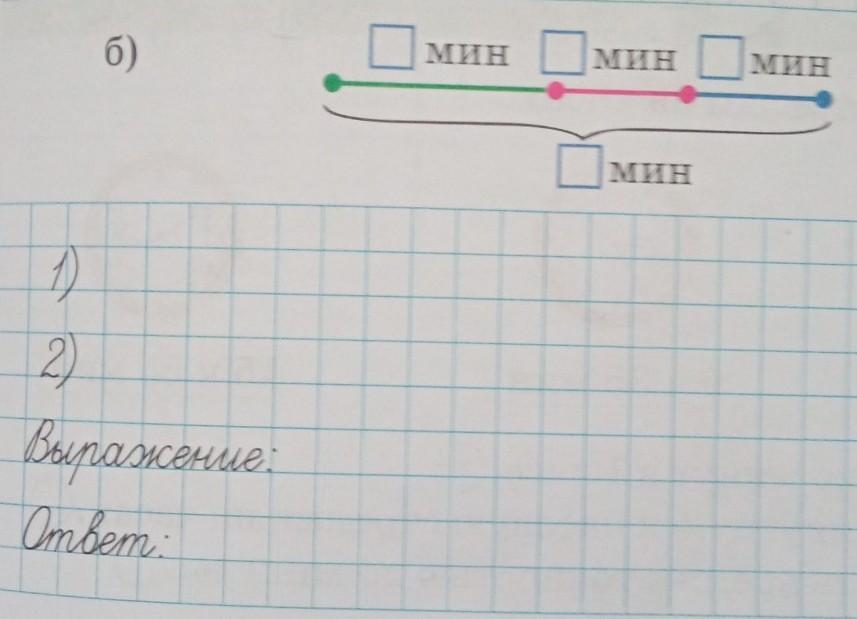 б)
□ мин □ мин □ мин
□ мин
1)
2)
Выражение:
Ответ: